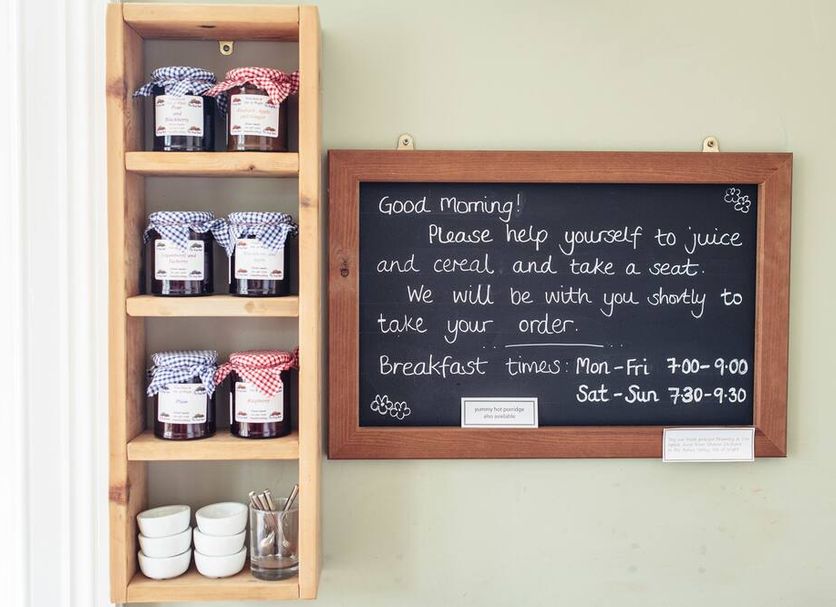 Good Morning!
Please help yourself to juice
and cereal and take a seat.
We will be with you shortly to
take your order.
Breakfast times: Mon-Fri 7.00-9.00
Sat-Sun 7.30-9.30
yummy hot porridge
also available
Pear
and
Blackberry
Rhubarb, Apple
and Ginger
Plum
Raspberry